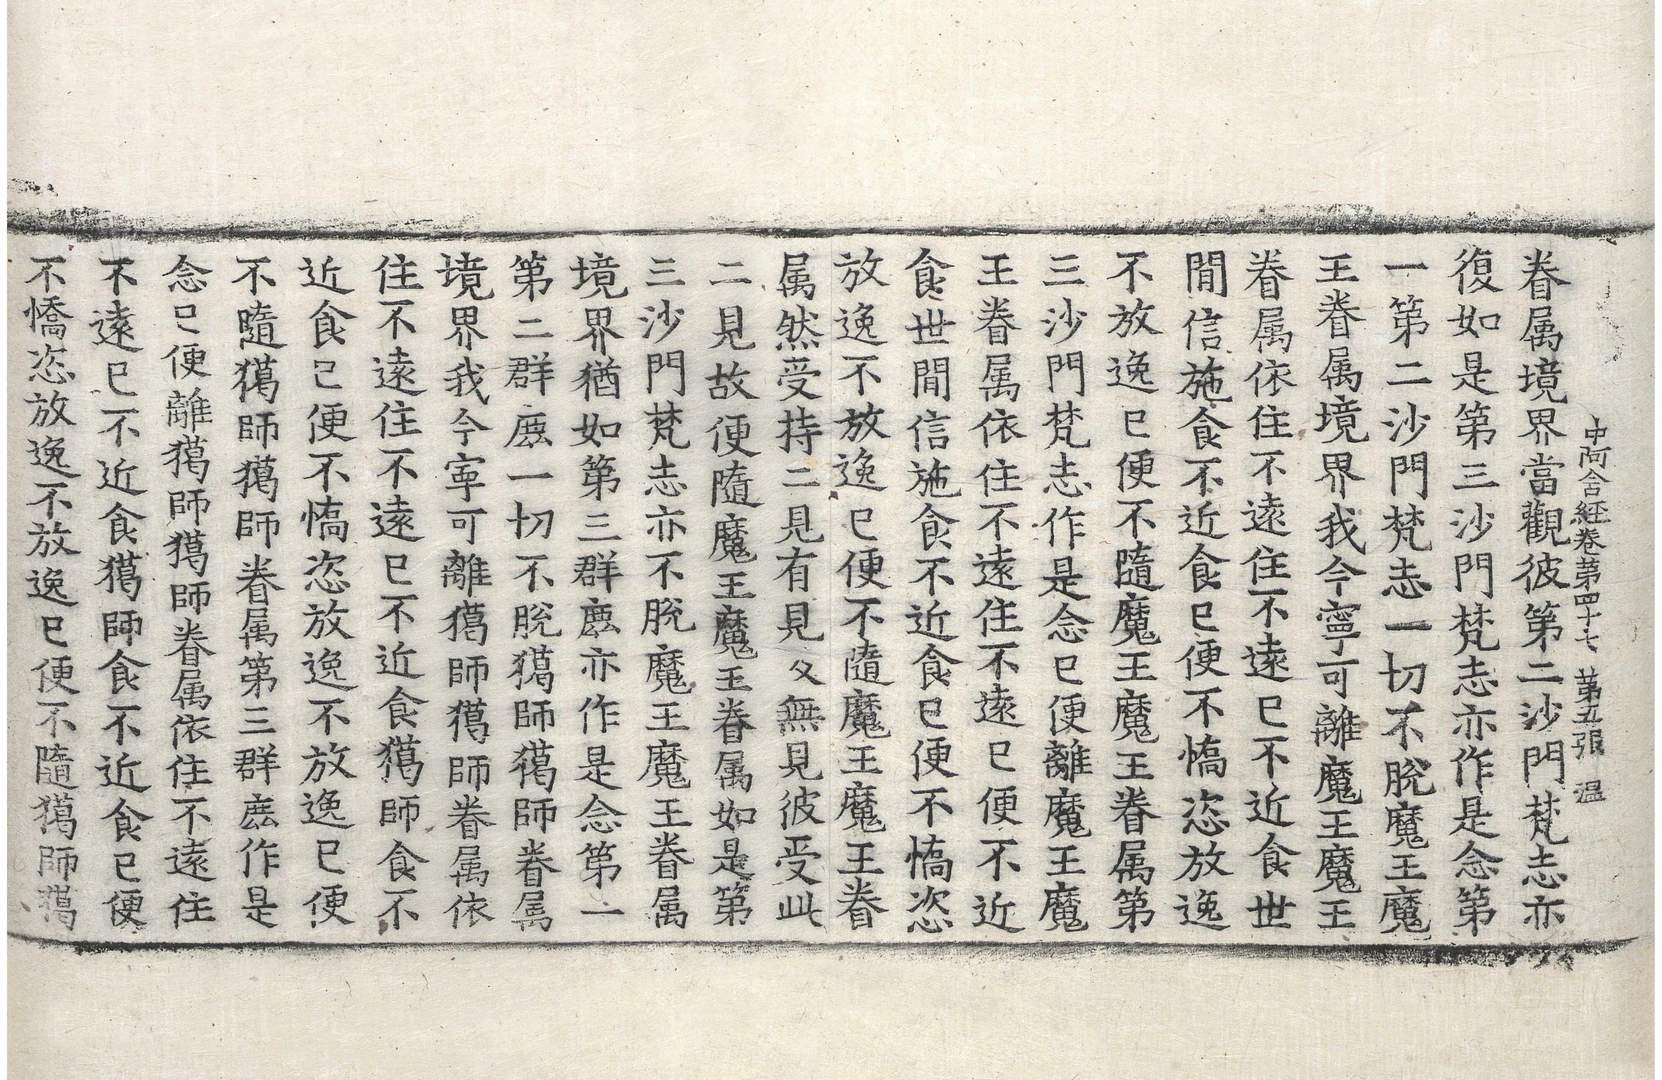 中阿含経卷苐四十七 第五張 温
眷属境界當觀彼第二沙門梵志亦
復如是第三沙門梵志亦作是念第
一第二沙門梵志一切不脫魔王魔
王眷属境界我今寧可離魔王魔王
眷属依住不遠住不遠已不近食世
閒信施食不近食已便不憍恣放逸
不放逸已便不隨魔王魔王眷属第
三沙門梵志作是念已便離魔王魔
王眷属依住不遠住不遠已便不近
食世閒信施食不近食已便不憍恣
放逸不放逸已便不隨魔王魔王眷
属然受持二見有見及無見彼受此
二見故便隨魔王魔王眷属如是第
三沙門梵志亦不脫魔王魔王眷属
境界猶如第三群麃亦作是念第一
第二群麃一切不脫獦師獦師眷属
境界我今寧可離獦師獦師眷属依
住不遠住不遠已不近食獦師食不
近食已便不憍恣放逸不放逸已便
不隨獦師獦師眷属第三群麃作是
念已便離獦師獦師眷属依住不遠住
不遠已不近食獦師食不近食已便
不憍恣放逸不放逸已便不隨獦師獦